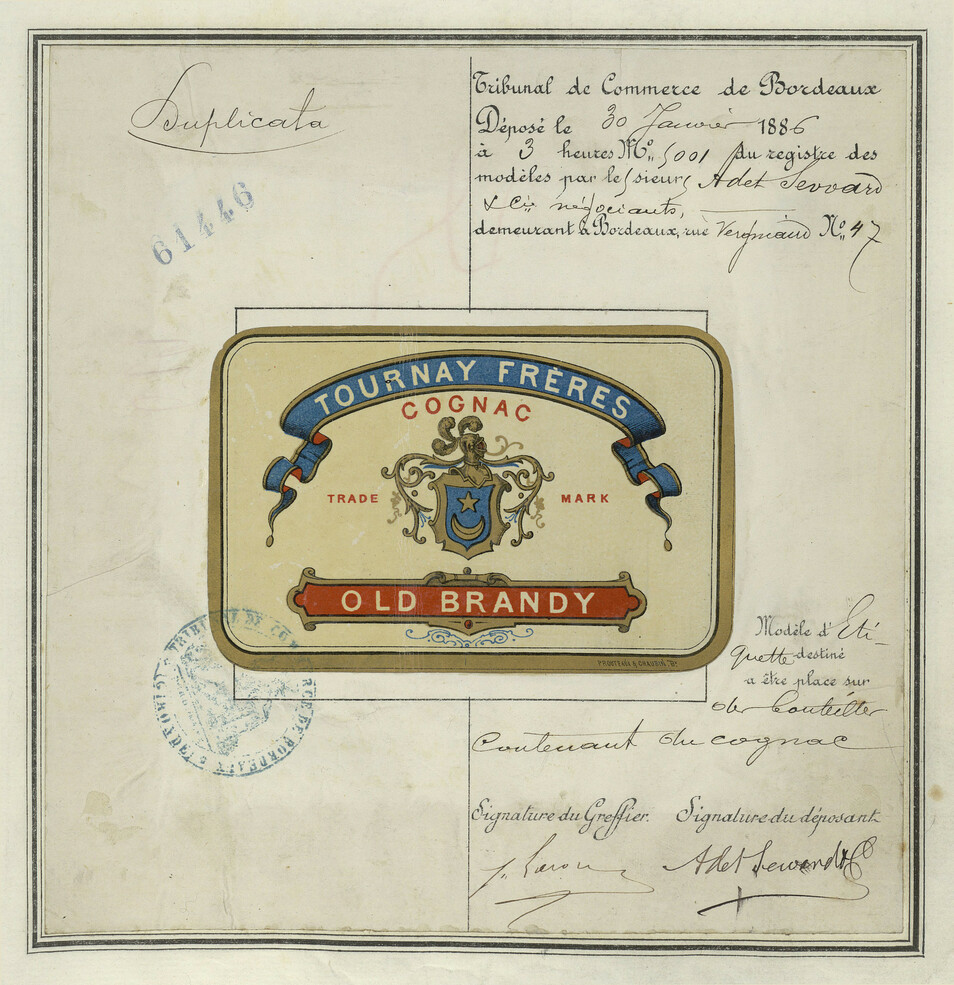 Duplicata
61446
Tribunal de Commerce de Bordeaux
Déposé le 30 Janvier 1886
à 3 heures No. 5001 du registre des
modèles par les sieurs Adet Seward
& Cie négociants,
demeurant à Bordeaux, rue Vergniaud No. 47
TOURNAY FRÈRES
COGNAC
TRADE MARK
OLD BRANDY
Modèle d'Eti-
quette destiné
a être place sur
des bouteilles
Contenant du cognac
TRIBUNAL DE COMMERCE DE BORDEAUX
Signature du Greffier. Signature du déposant
Adet Seward & Co